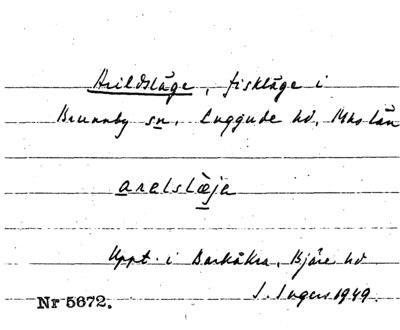 Arildsläge, fiskläge i
Brunnby sn, Luggude hd, Mhs län
arelslæje
Uppt. i Barkåkra, Bjäre hd
I. Ingers 1949.
Nr 5672.